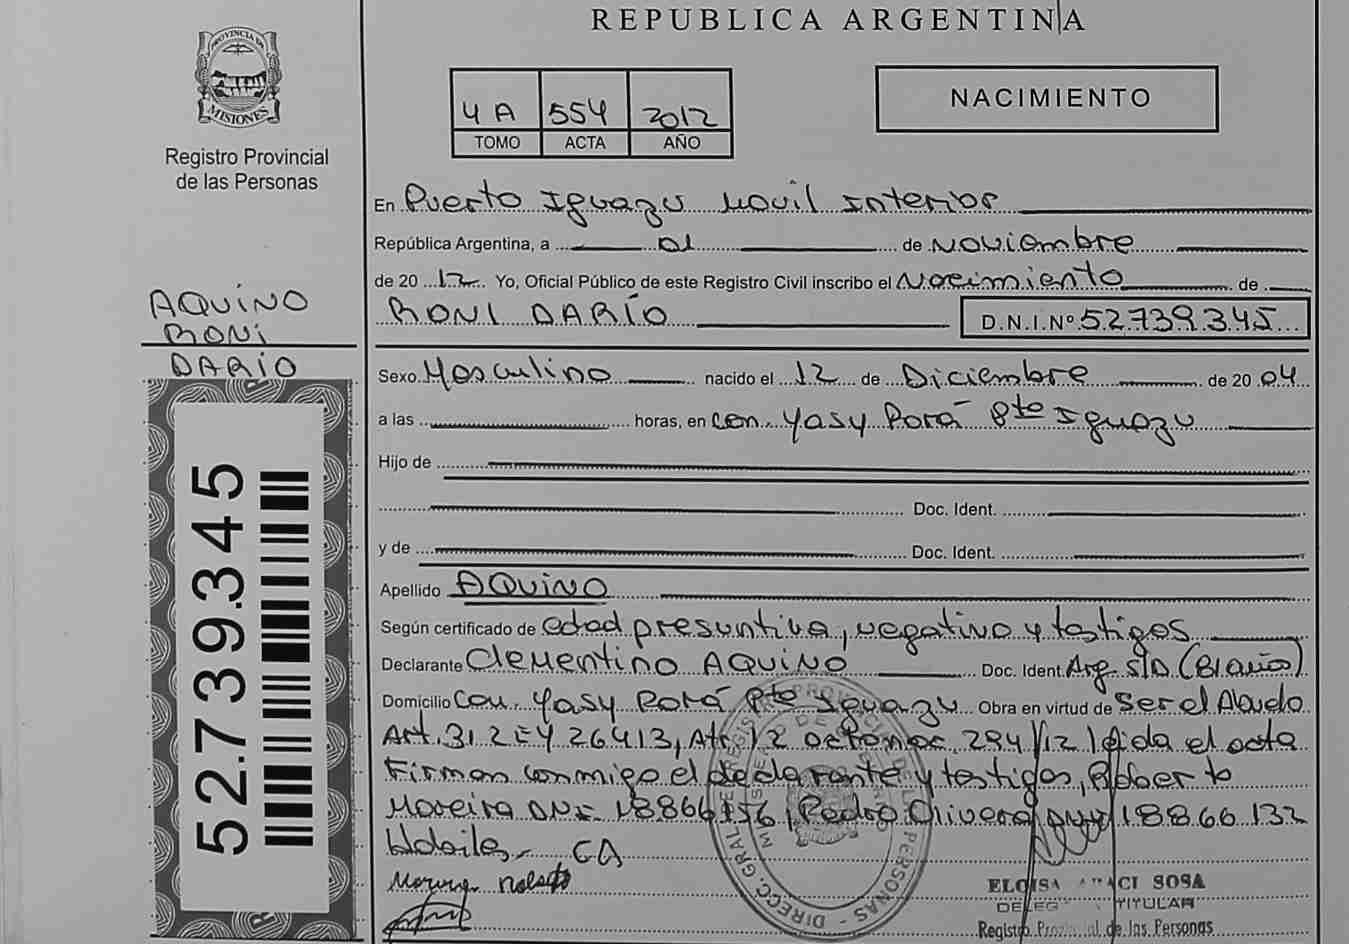 REPUBLICA ARGENTINA
PROVINCIA DE
MISIONES
Registro Provincial
de las Personas
4 A 554 2012
TOMO ACTA AÑO
NACIMIENTO
En Puerto Iguazu Movil Interior
República Argentina, a 01 de Noviembre
de 20 12 Yo, Oficial Público de este Registro Civil inscribo el Nacimiento de
RONI DARÍO D.N.I.Nº 52.739.345
AQUINO
RONI
DARÍO
52.739.345
Sexo Masculino nacido el 12 de Diciembre de 20 04
a las horas, en Com. Yasy Porá Pto Iguazu
Hijo de
Doc. Ident.
y de Doc. Ident.
Apellido AQUINO
Según certificado de edad presuntiva, negativo y testigos
Declarante Clementino AQUINO Doc. Ident. Arg. S/D (81 años)
Domicilio Com. Yasy Porá Pto Iguazu Obra en virtud de Ser el Abuelo
Art. 31 26413, 12 294/12 el acta
Firman conmigo el declarante y testigos, Roberto
Moreira DNI 18866156, Pedro Olivera DNI 18866132
CA
ELOISA SOSA
TITULAR
Registro Provincial de las Personas